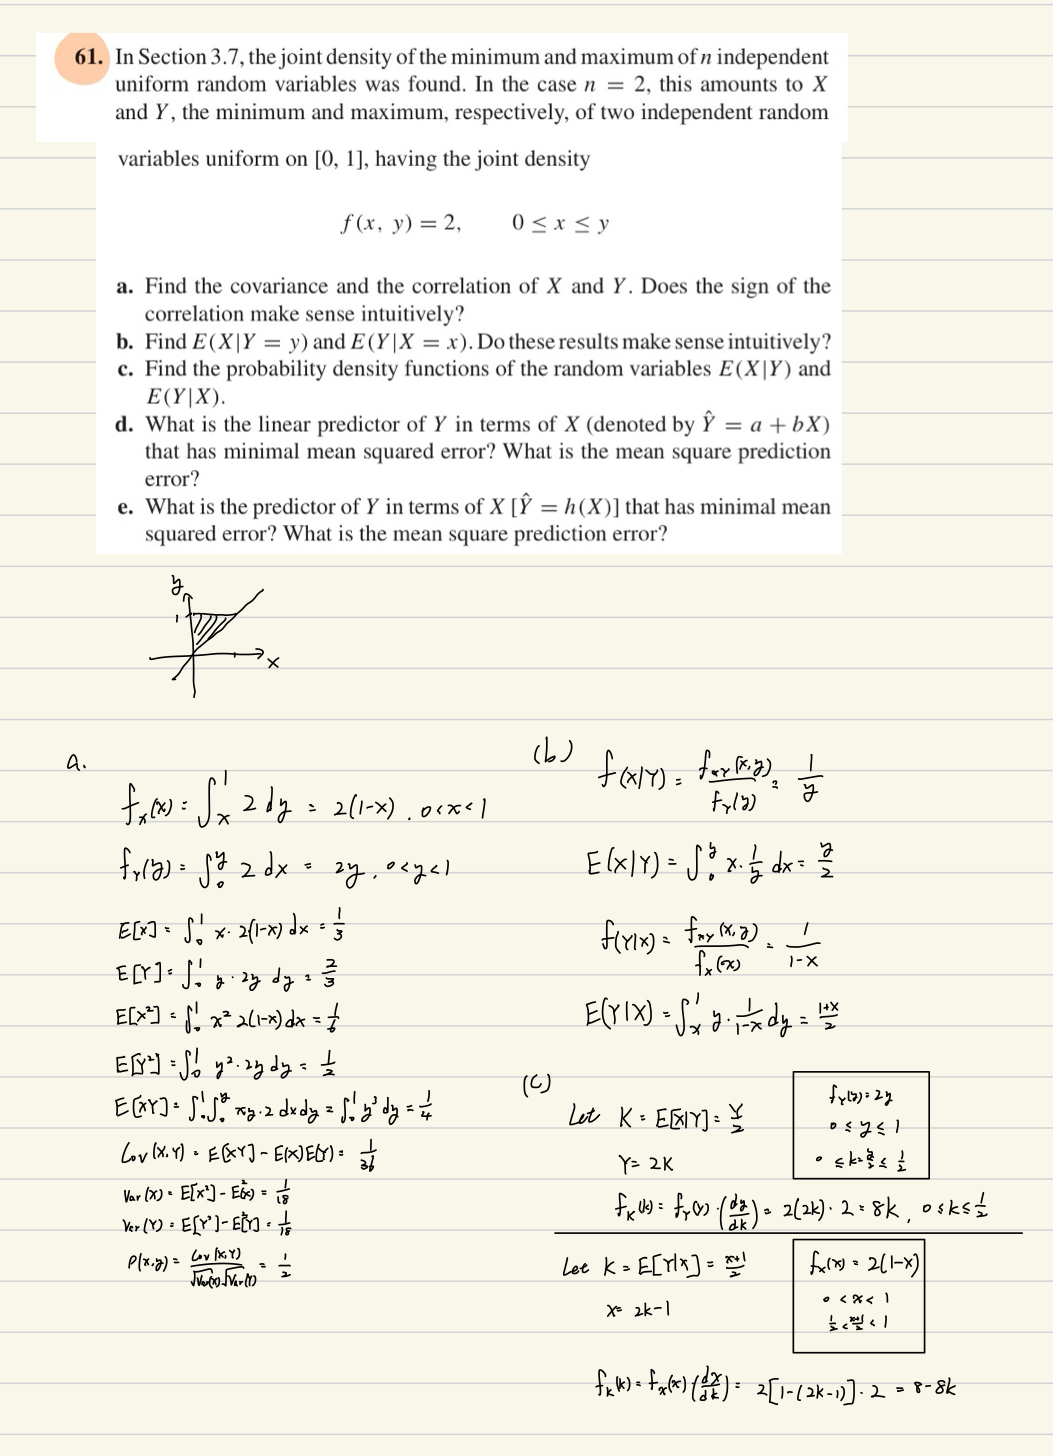 61. In Section 3.7, the joint density of the minimum and maximum of n independent
uniform random variables was found. In the case n = 2, this amounts to X
and Y, the minimum and maximum, respectively, of two independent random
variables uniform on [0, 1], having the joint density
f(x, y) = 2, 0 ≤ x ≤ y
a. Find the covariance and the correlation of X and Y. Does the sign of the
correlation make sense intuitively?
b. Find E(X|Y = y) and E(Y|X = x). Do these results make sense intuitively?
c. Find the probability density functions of the random variables E(X|Y) and
E(Y|X).
d. What is the linear predictor of Y in terms of X (denoted by Ŷ = a + bX)
that has minimal mean squared error? What is the mean square prediction
error?
e. What is the predictor of Y in terms of X [Ŷ = h(X)] that has minimal mean
squared error? What is the mean square prediction error?
y
1
x
a.
f_X(x) = ∫_x^1 2 dy = 2(1-x), 0<x<1
f_Y(y) = ∫_0^y 2 dx = 2y, 0<y<1
E[X] = ∫_0^1 x · 2(1-x) dx = 1/3
E[Y] = ∫_0^1 y · 2y dy = 2/3
E[X²] = ∫_0^1 x² 2(1-x) dx = 1/6
E[Y²] = ∫_0^1 y² · 2y dy = 1/2
E[XY] = ∫_0^1 ∫_0^y xy · 2 dx dy = ∫_0^1 y³ dy = 1/4
Cov(X,Y) = E[XY] - E(X)E(Y) = 1/36
Var(X) = E[X²] - E²(X) = 1/18
Var(Y) = E[Y²] - E²[Y] = 1/18
ρ(x,y) = Cov(X,Y) / √Var(X) √Var(Y) = 1/2
(b)
f(X|Y) = f_XY(x,y) / f_Y(y) = 1/y
E(X|Y) = ∫_0^y x · 1/y dx = y/2
f(Y|X) = f_XY(x,y) / f_X(x) = 1/(1-x)
E(Y|X) = ∫_x^1 y · 1/(1-x) dy = (1+x)/2
(c)
Let K = E[X|Y] = Y/2
Y = 2K
f_Y(y) = 2y
0 ≤ y ≤ 1
0 ≤ k = y/2 ≤ 1/2
f_K(k) = f_Y(y) · (dy/dk) = 2(2k) · 2 = 8k, 0 ≤ k ≤ 1/2
Let K = E[Y|X] = (x+1)/2
X = 2k-1
f_X(x) = 2(1-x)
0 < x < 1
1/2 < (x+1)/2 < 1
f_K(k) = f_X(x) (dx/dk) = 2[1-(2k-1)] · 2 = 8-8k